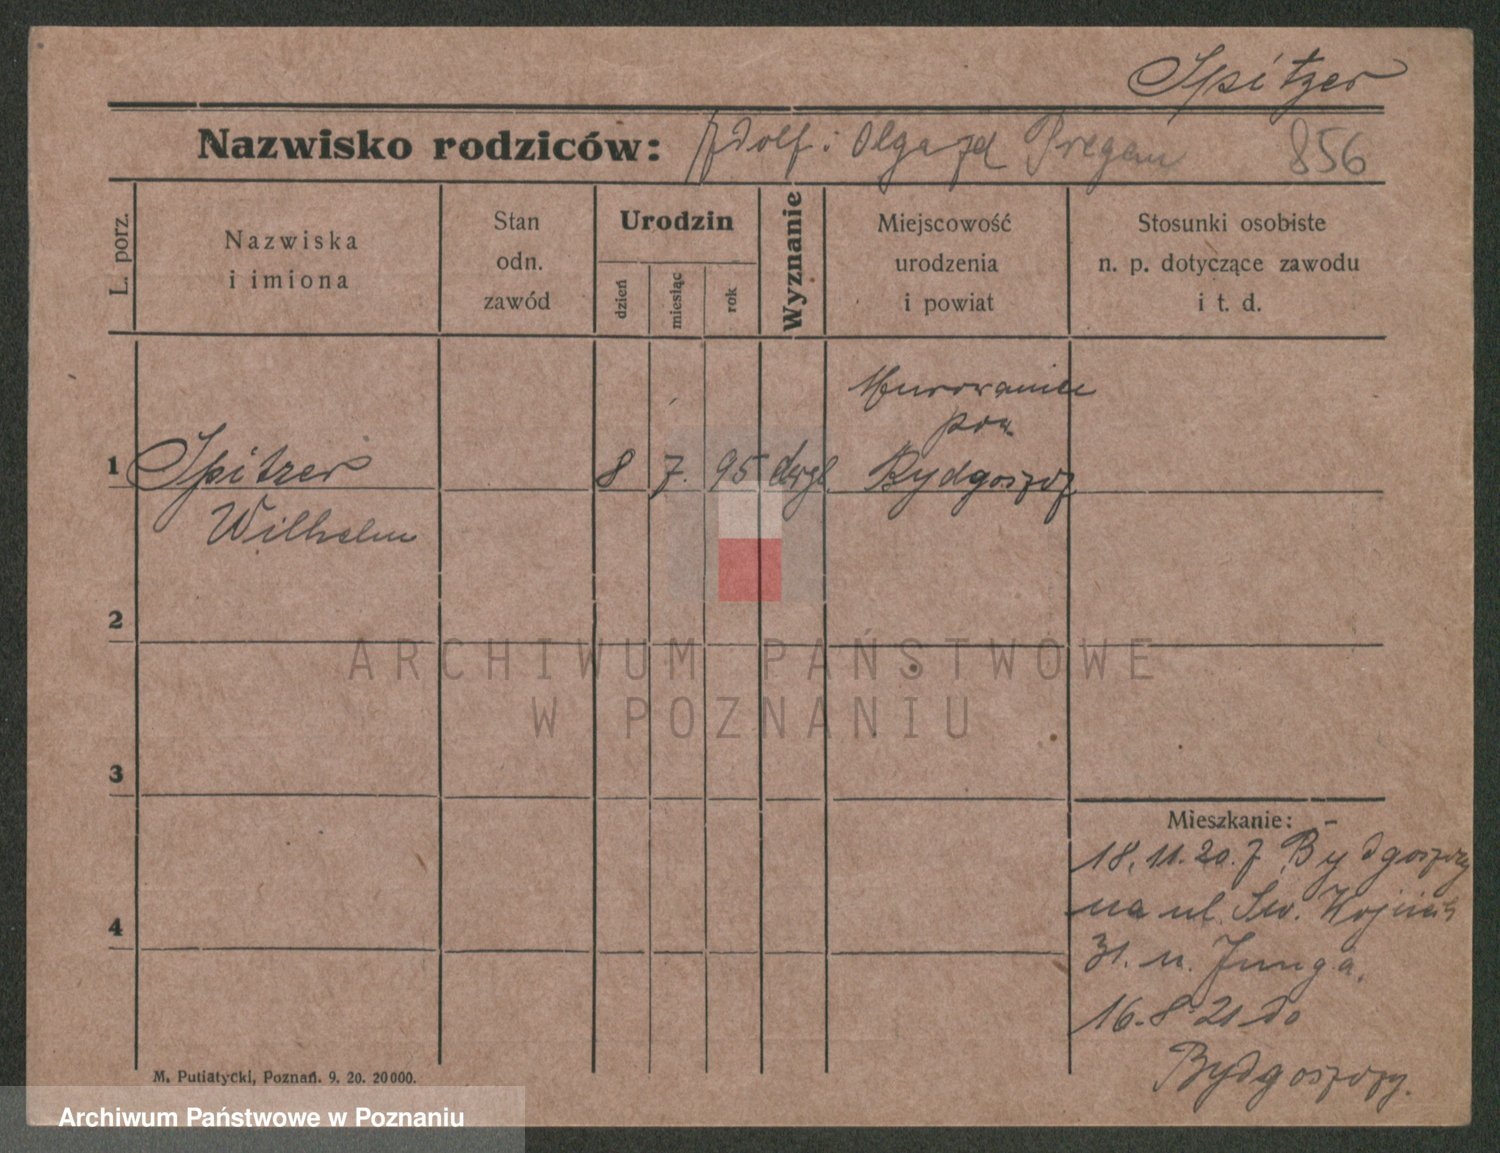 Spitzer
Nazwisko rodziców: Adolf i Olga zd Pregan 856
L. porz.
Nazwiska i imiona
Stan odn. zawód
Urodzin
dzień
miesiąc
rok
Wyznanie
Miejscowość urodzenia i powiat
Stosunki osobiste n. p. dotyczące zawodu i t. d.
1 Spitzer 8 7. 95 ewgl.
Wilhelm
pow
Bydgoszcz
2
3
4
ARCHIWUM PAŃSTWOWE
W POZNANIU
Mieszkanie: -
18. 11. 20. z Bydgoszczy
na ul. Św. Wojciech
31. u. Junga.
16. 8. 21 do
Bydgoszczy.
M. Putiatycki, Poznań. 9. 20. 20 000.
Archiwum Państwowe w Poznaniu